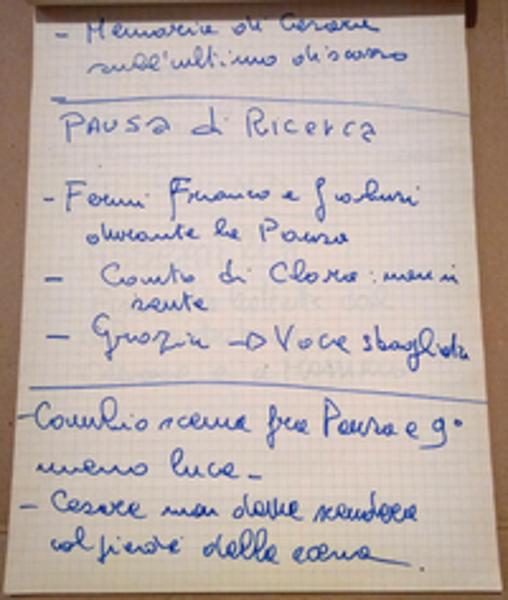 - Memoria di Cesare
sull'ultimo discorso
PAUSA di Ricerca
- Fermi Franco e
durante la Pausa
- Canto di Clara: non si
sente
- Grazia → Voce sbagliata
- Cambio scena fra Pausa e 9°
meno luce -
- Cesare non deve scendere
dalla scena.